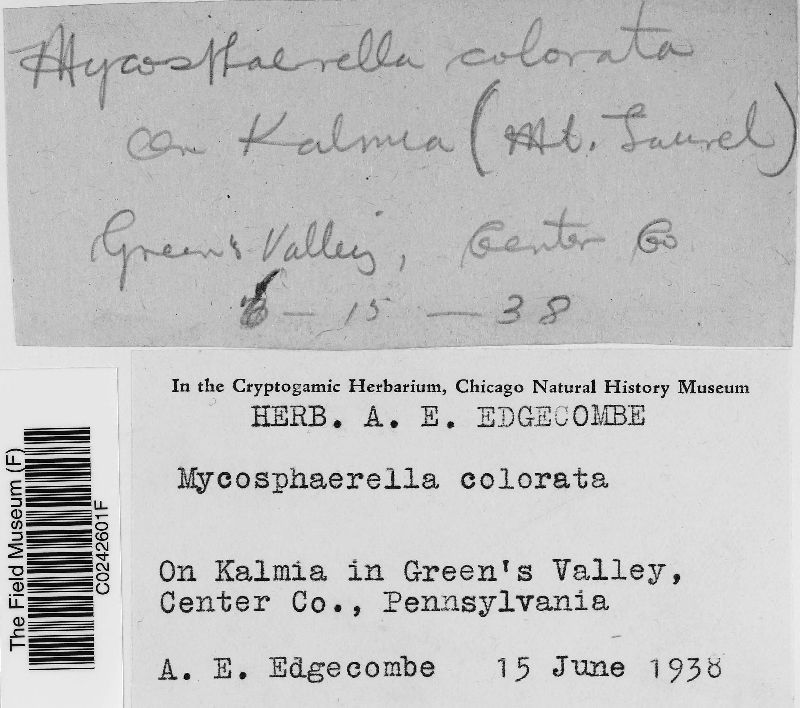 Mycosphaerella colorata
on Kalmia (Mt. Laurel)
Green's Valley, Center Co
6-15-38
In the Cryptogamic Herbarium, Chicago Natural History Museum
HERB. A. E. EDGECOMBE
Mycosphaerella colorata
On Kalmia in Green's Valley,
Center Co., Pennsylvania
A. E. Edgecombe 15 June 1938
The Field Museum (F)
C0242601F